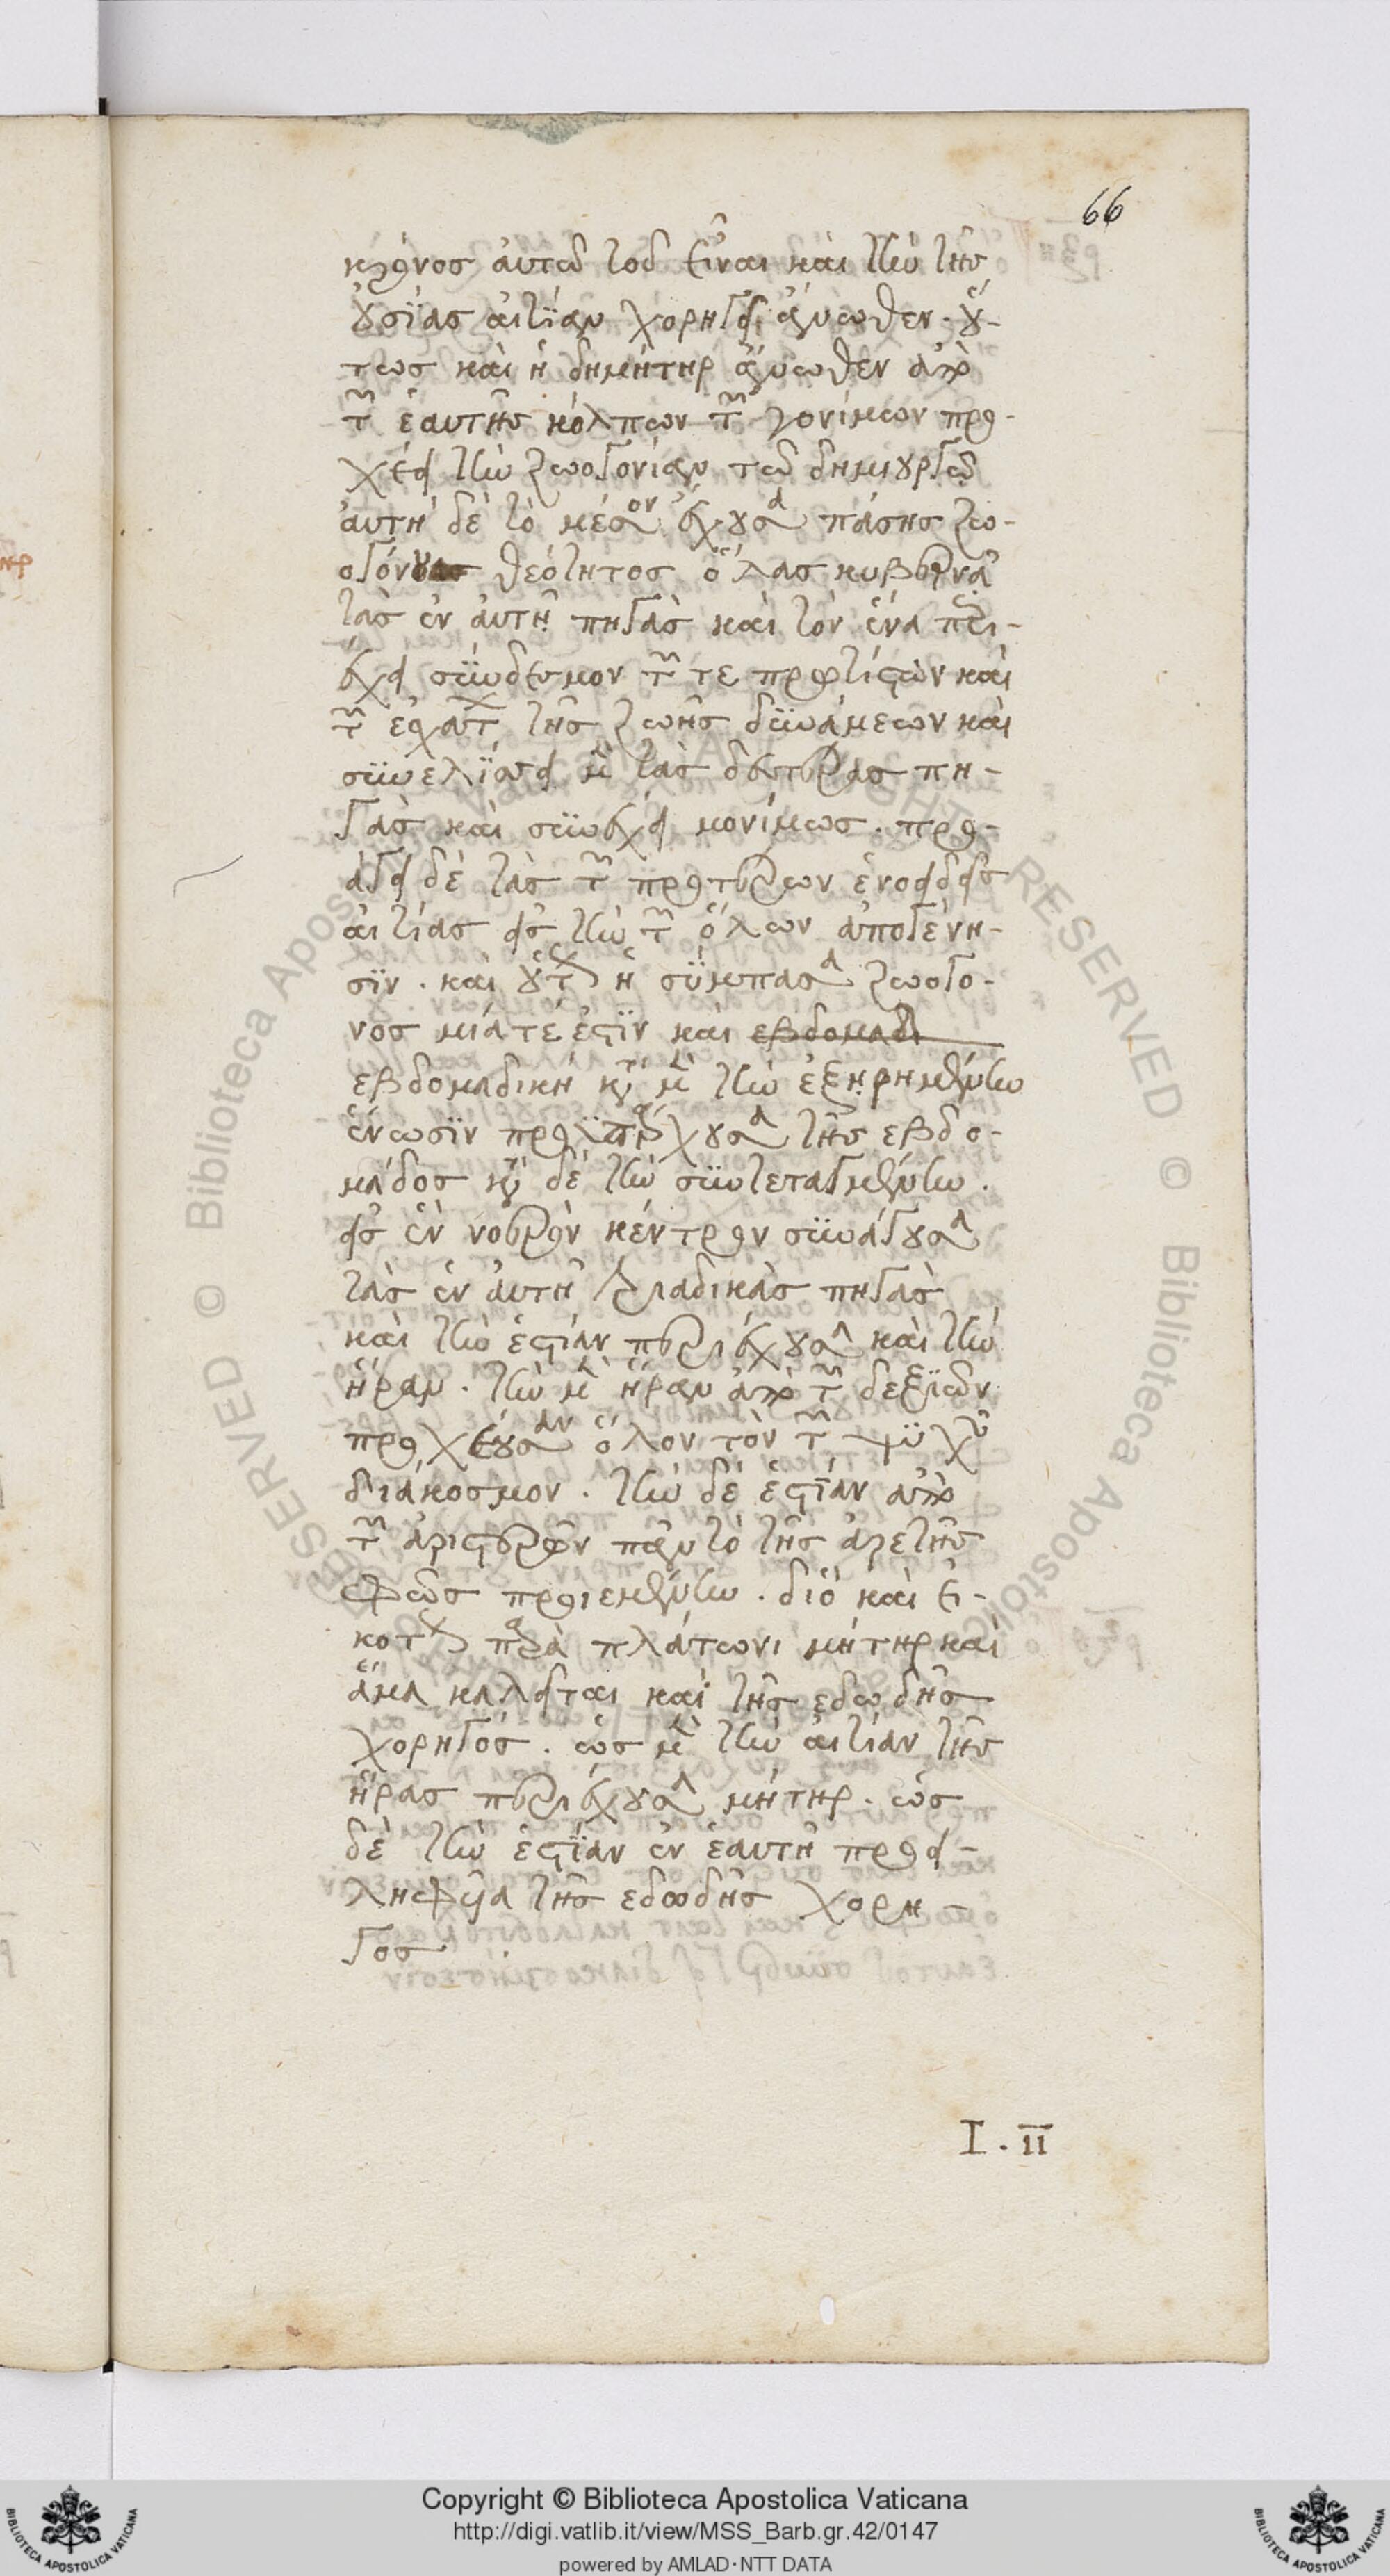 66
κρόνος αὐτῶ τοῦ εἶναι καὶ τὴν τῆς
οὐσίας αἰτίαν χορηγεῖ ἄνωθεν. οὕ-
τως καὶ ἡ δημήτηρ ἄνωθεν ἀπὸ
τῶν ἑαυτῆς κόλπων τῶν γονίμων προ-
χέει τὴν ζωογονίαν τῶ δημιουργῶ
αὐτὴ δὲ τὸ μέσον ἔχουσα πάσης ζω-
ογόνου θεότητος ὅλας κυβερνᾶ
τὰς ἐν αὐτῇ πηγὰς καὶ τὸν ἕνα περι-
έχει σύνδεσμον τῶν τε πρωτίστων καὶ
τῶν ἐσχάτων τῆς ζωῆς δυνάμεων καὶ
συνελίσσει μὲν τὰς δευτέρας πη-
γὰς καὶ συνέχει μονίμως. προ-
άγει δὲ τὰς τῶν προτέρων ἑνοειδεῖς
αἰτίας εἰς τὴν τῶν ὅλων ἀπογένη-
σιν. καὶ οὕτως ἡ σύμπασα ζωογο-
νος μιά τέ ἐστιν καὶ εβδομαδι
εβδομαδική κατὰ μὲν τὴν ἐξῃρημένην
ἕνωσιν προϋπάρχουσα τῆς εβδο-
μάδος κατὰ δὲ τὴν συντεταγμένην.
εἰς ἓν νοερὸν κέντρον συνάγουσα
τὰς ἐν αὐτῇ τριαδικὰς πηγὰς
καὶ τὴν ἑστίαν περιέχουσα καὶ τὴν
ἥραν. τὴν μὲν ἥραν ἀπὸ τῶν δεξιῶν
προχέουσαν ὅλον τὸν τῶν ψυχῶν
διάκοσμον. τὴν δὲ ἑστίαν ἀπὸ
τῶν ἀριστερῶν πᾶν τὸ τῆς ἀρετῆς
φῶς προιεμένην. διὸ καὶ εἰ-
κότως παρὰ πλάτωνι μήτηρ καὶ
ἅμα καλεῖται καὶ τῆς εδωδῆς
χορηγός. ὡς μὲν τὴν αἰτίαν τῆς
ἥρας περιέχουσα μήτηρ. ὡς
δὲ τὴν ἑστίαν ἐν ἑαυτῇ προει-
ληφυῖα τῆς εδωδῆς χορη-
γος
I. II
Copyright © Biblioteca Apostolica Vaticana
http://digi.vatlib.it/view/MSS_Barb.gr.42/0147
powered by AMLAD·NTT DATA